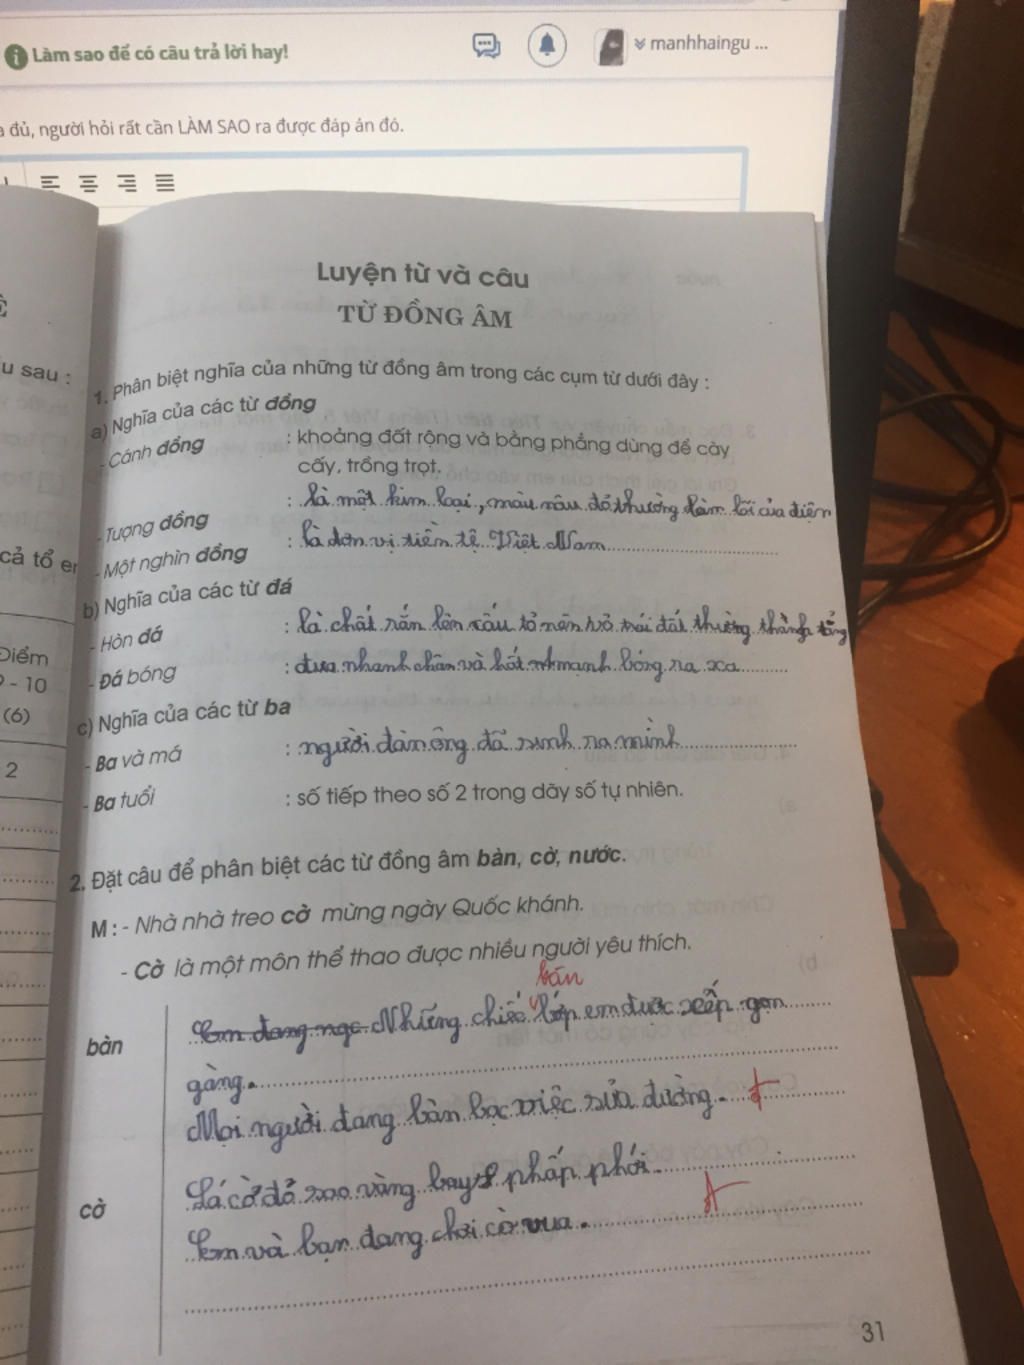 Làm sao để có câu trả lời hay!
manhhaingu ...
đủ, người hỏi rất cần LÀM SAO ra được đáp án đó.
Luyện từ và câu
TỪ ĐỒNG ÂM
u sau :
1. Phân biệt nghĩa của những từ đồng âm trong các cụm từ dưới đây :
a) Nghĩa của các từ đồng
- Cánh đồng : khoảng đất rộng và bằng phẳng dùng để cày
cấy, trồng trọt.
- Tượng đồng : là một kim loại, màu nâu đỏ thường làm lõi của điện
cả tổ em
- Một nghìn đồng : là đơn vị tiền tệ Việt Nam
b) Nghĩa của các từ đá
- Hòn đá : là chất rắn lên cấu tỏ nên vỏ trái đất thường thành tảng
Điểm
- 10
- Đá bóng : đưa nhanh chân và hất mạnh bóng ra xa
(6)
c) Nghĩa của các từ ba
- Ba và má : người đàn ông đã sinh ra mình
2
- Ba tuổi : số tiếp theo số 2 trong dãy số tự nhiên.
2. Đặt câu để phân biệt các từ đồng âm bàn, cờ, nước.
M : - Nhà nhà treo cờ mừng ngày Quốc khánh.
- Cờ là một môn thể thao được nhiều người yêu thích.
bàn
bàn Em đang ngc Những chiếc lớp em được xếp gọn
gàng.
Mọi người đang bàn bạc việc sửa đường.
cờ Lá cờ đỏ sao vàng bay phấp phới.
Em và bạn đang chơi cờ vua.
31